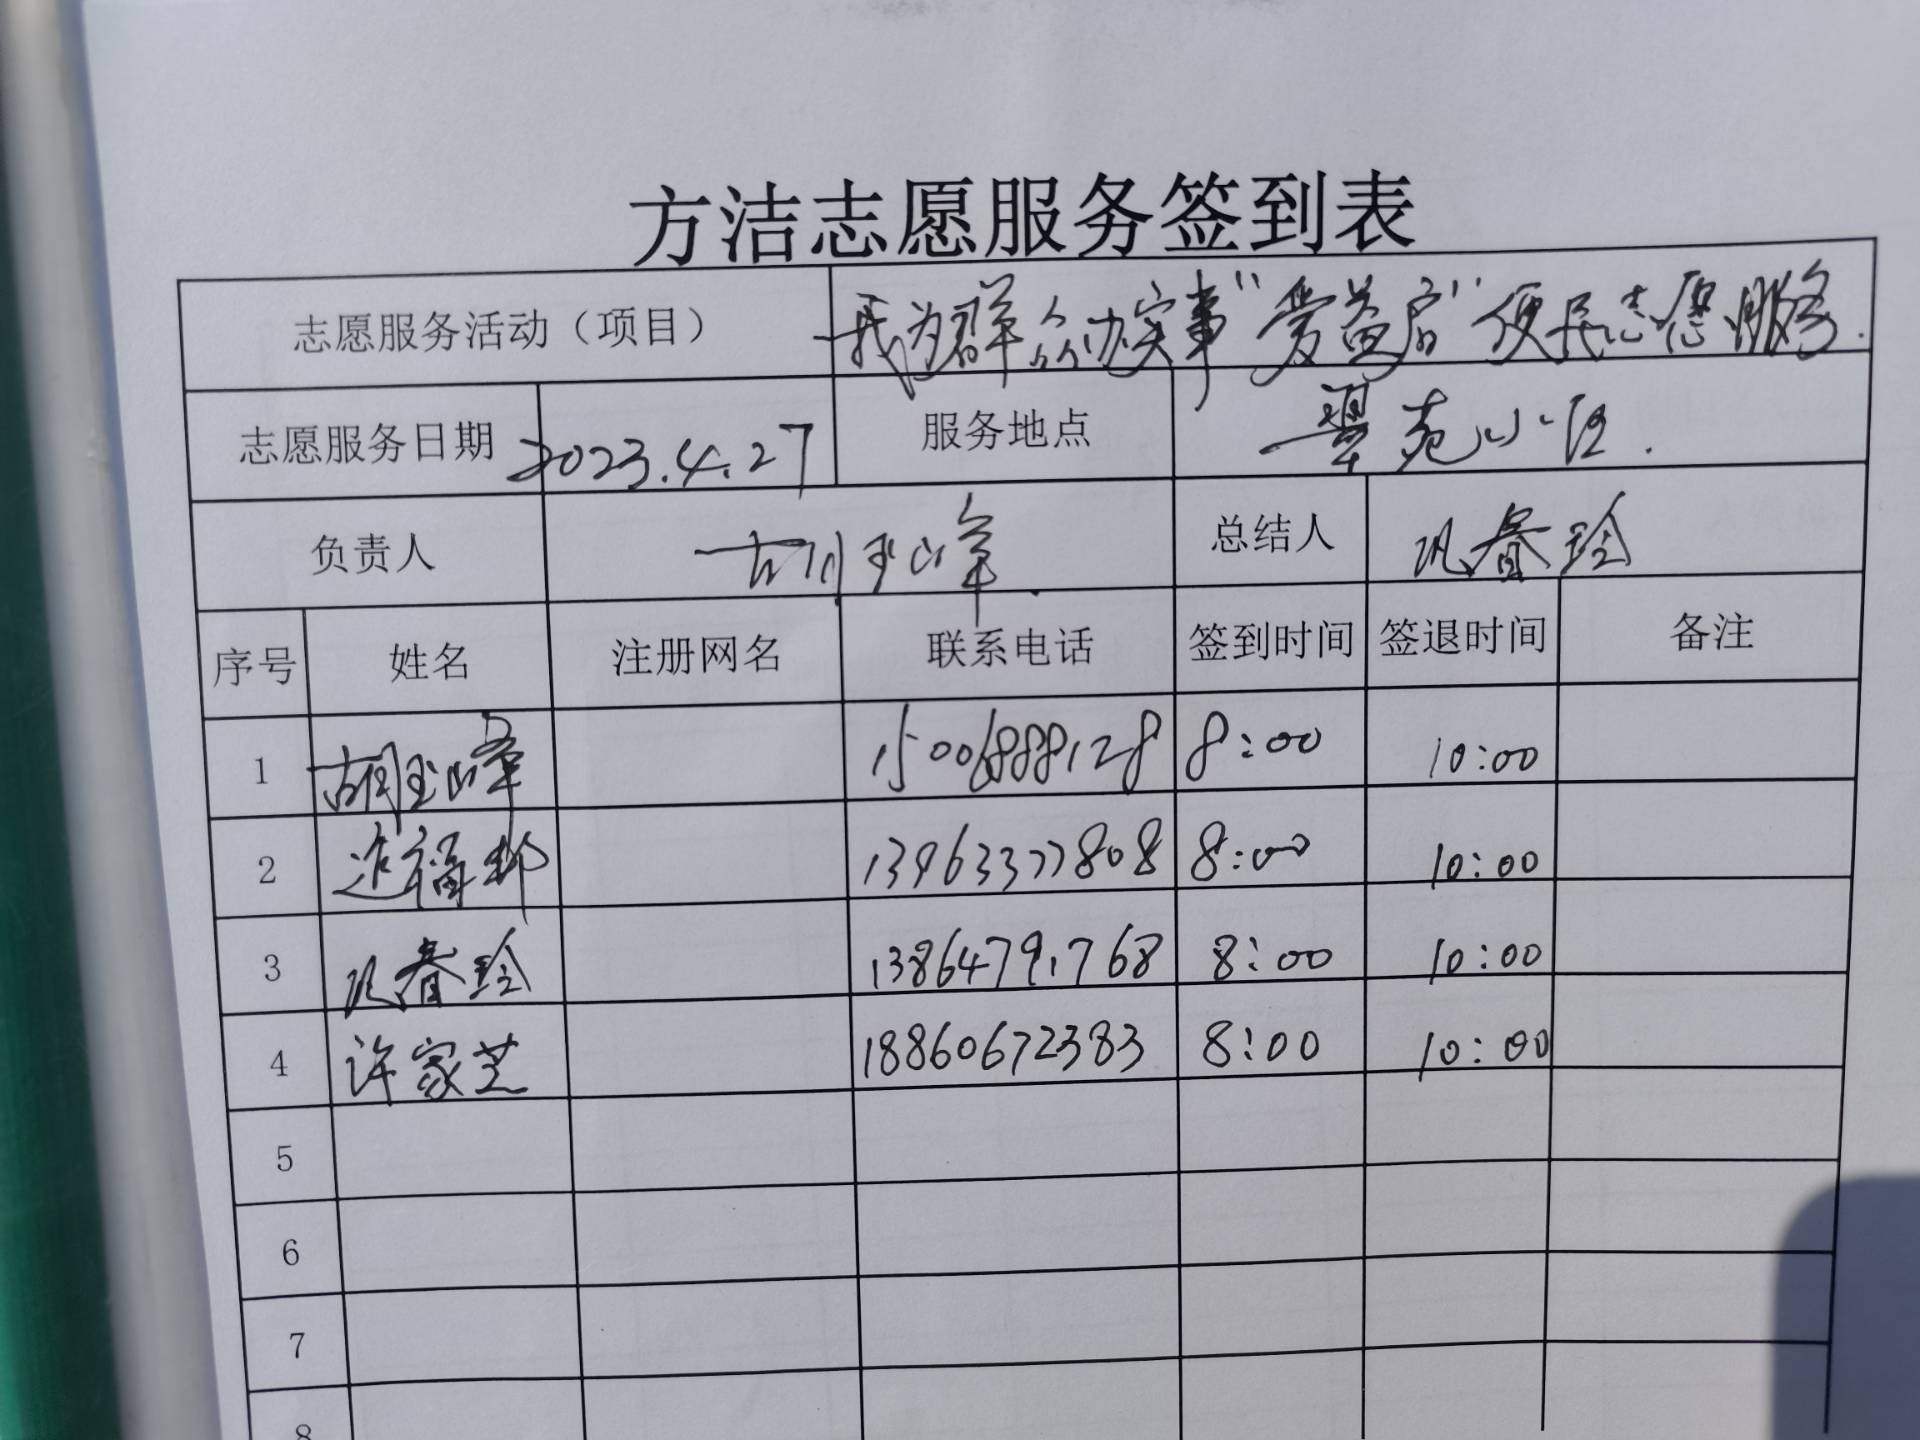 方洁志愿服务签到表
志愿服务活动（项目） 我为群众办实事"爱益启"便民志愿服务.
志愿服务日期 2023.4.27 服务地点 翠苑小区.
负责人 胡玉峰 总结人 巩春玲
序号 姓名 注册网名 联系电话 签到时间 签退时间 备注
1 胡玉峰 15006888128 8:00 10:00
2 福 13963377808 8:00 10:00
3 巩春玲 13864791768 8:00 10:00
4 许家芝 18860672383 8:00 10:00
5
6
7
8